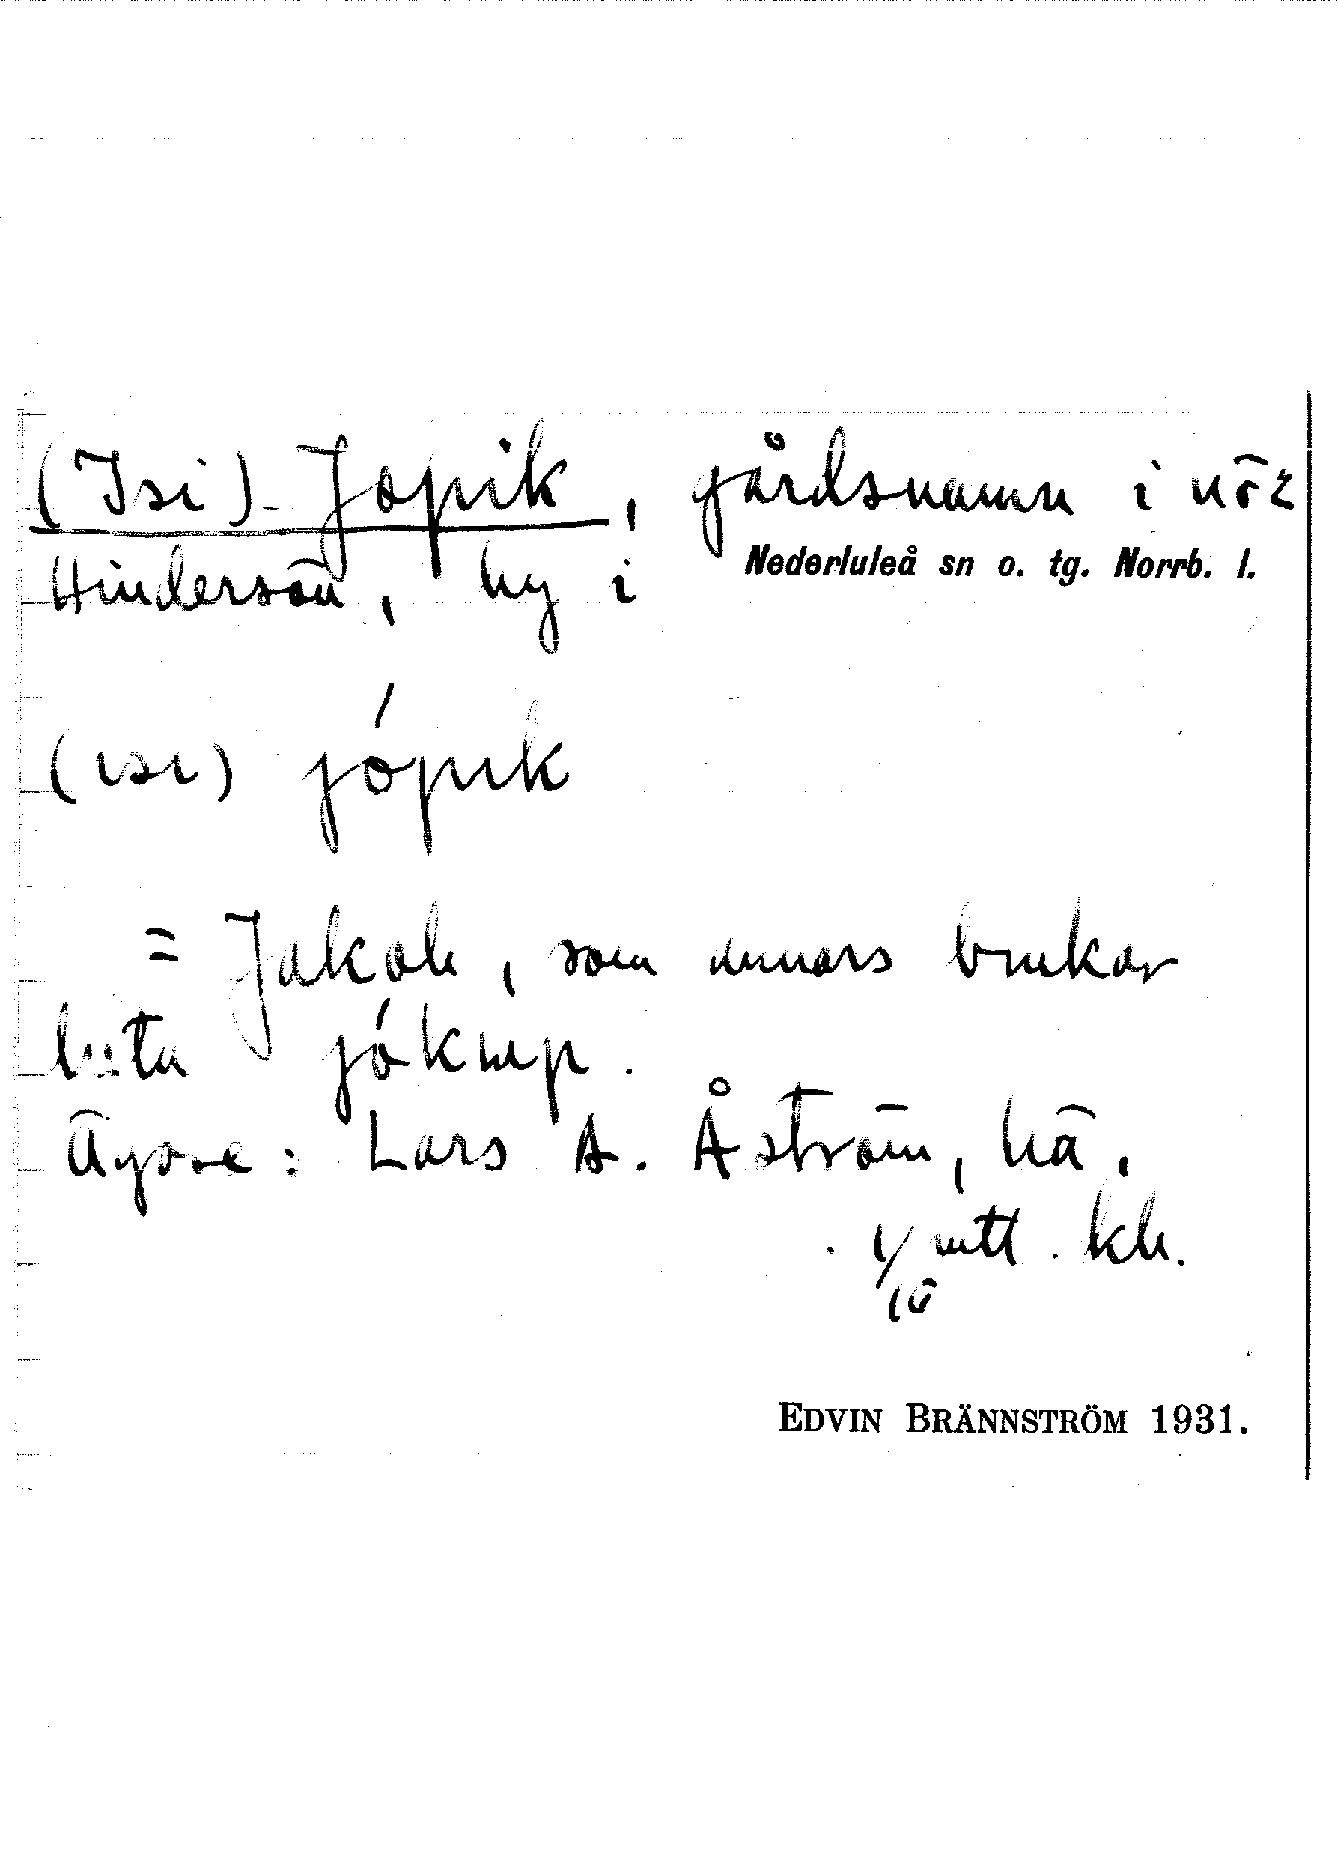 (Isi)-Jopik, gårdsnamn i nör
Hindersön, by i Nederluleå sn o. tg. Norrb. l.
(isi) jópik
= Jakob, som annars brukar
heta jókup.
Ägare: Lars A. Åström, hä.
mtl. kb.
EDVIN BRÄNNSTRÖM 1931.